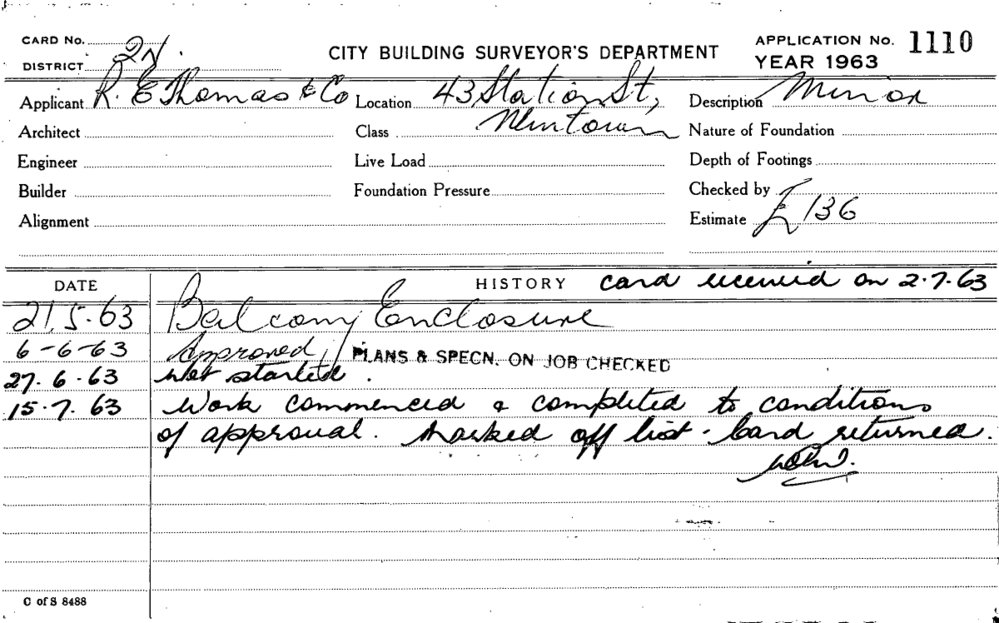 CARD No.
CITY BUILDING SURVEYOR'S DEPARTMENT
APPLICATION No. 1110
DISTRICT
YEAR 1963
Applicant R. E Thomas & Co Location 43 Station St, Description Minor
Architect Class Newtown Nature of Foundation
Engineer Live Load Depth of Footings
Builder Foundation Pressure Checked by
Alignment Estimate £136
DATE HISTORY card received on 2.7.63
21.5.63 Balcony Enclosure
6-6-63 Approved, PLANS & SPECN. ON JOB CHECKED
27.6.63 Not started.
15.7.63 Work commenced & completed to conditions
of approval. Marked off list. Card returned.
C of S 8488